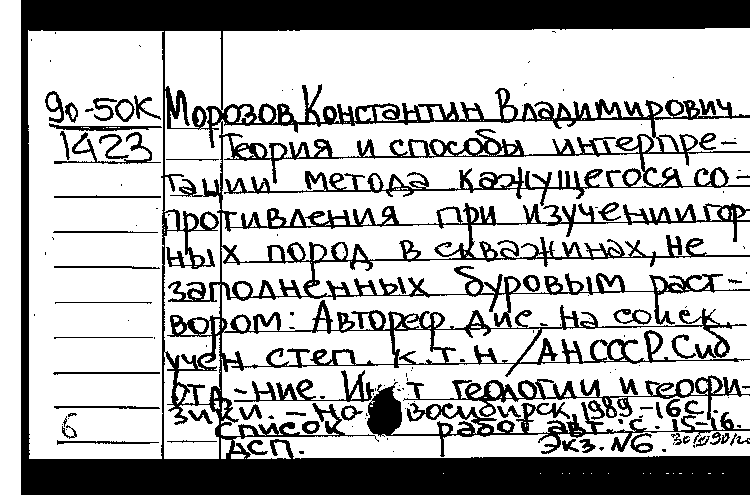 90-50К Морозов, Константин Владимирович.
1423 Теория и способы интерпре-
тации метода кажущегося со-
противления при изучении гор-
ных пород в скважинах, не
заполненных буровым раст-
вором: Автореф. дис. на соиск.
учен. степ. к.т.н. / АН СССР. Сиб
отд-ние. Ин-т геологии и геофи-
зики. - Новосибирск, 1989. - 16с.
6 Список работ авт.: с. 15-16.
ДСП. Экз. №6.